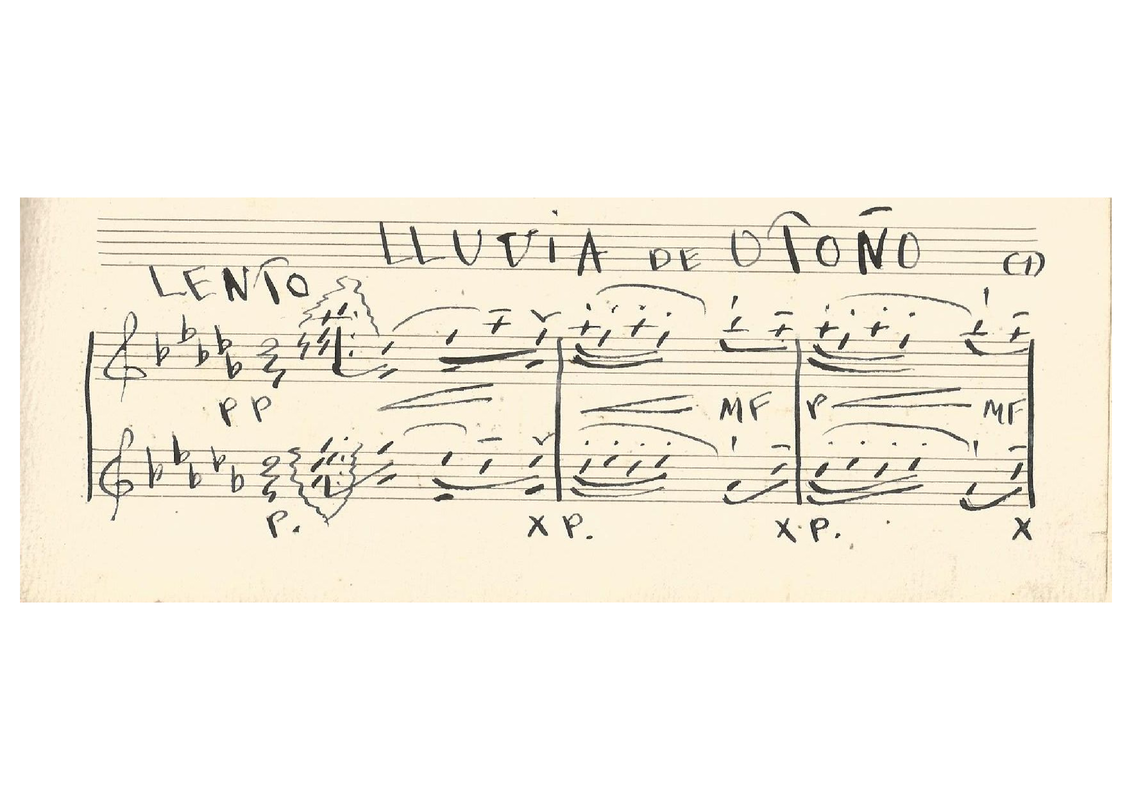 LLUVIA DE OTOÑO (1)
LENTO
PP MF P MF
P. X P. X. P. X